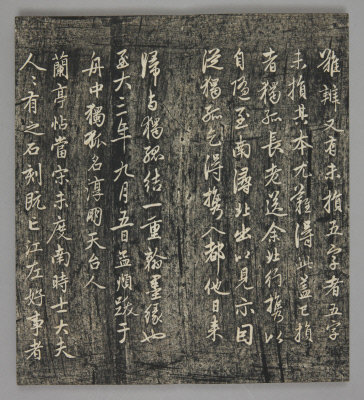 難辨又有未損五字者五字
未損其本尤難得此蓋已損
者獨孤長老送余北行攜以
自隨至南潯北出以見示因
從獨孤乞得攜入都他日來
歸与獨孤結一重翰墨緣也
至大三年九月五日孟頫跋于
舟中獨孤名淳朋天台人
蘭亭帖當宋未度南時士大夫
人〻有之石刻既亡江左好事者